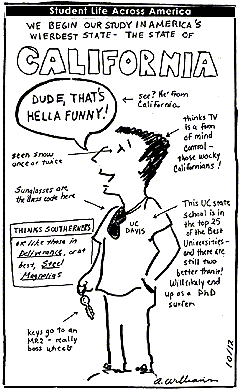 Student Life Across America
WE BEGIN OUR STUDY IN AMERICA'S
WIERDEST STATE - THE STATE OF
CALIFORNIA
DUDE, THAT'S
HELLA FUNNY!
See? He's from
California.
thinks TV
is a form
of mind
control -
those wacky
Californians!
seen snow
once or twice
Sunglasses are
the dress code here
UC
DAVIS
This UC state
school is in the
top 25
of the Best
Universities -
and there
are still two
better than it!
Will likely end
up as a PhD
surfer
THINKS SOUTHERNERS
are like those in
Deliverance, or at
best, Steel
Magnolias
keys go to an
MR2 - really
boss wheels
10/12